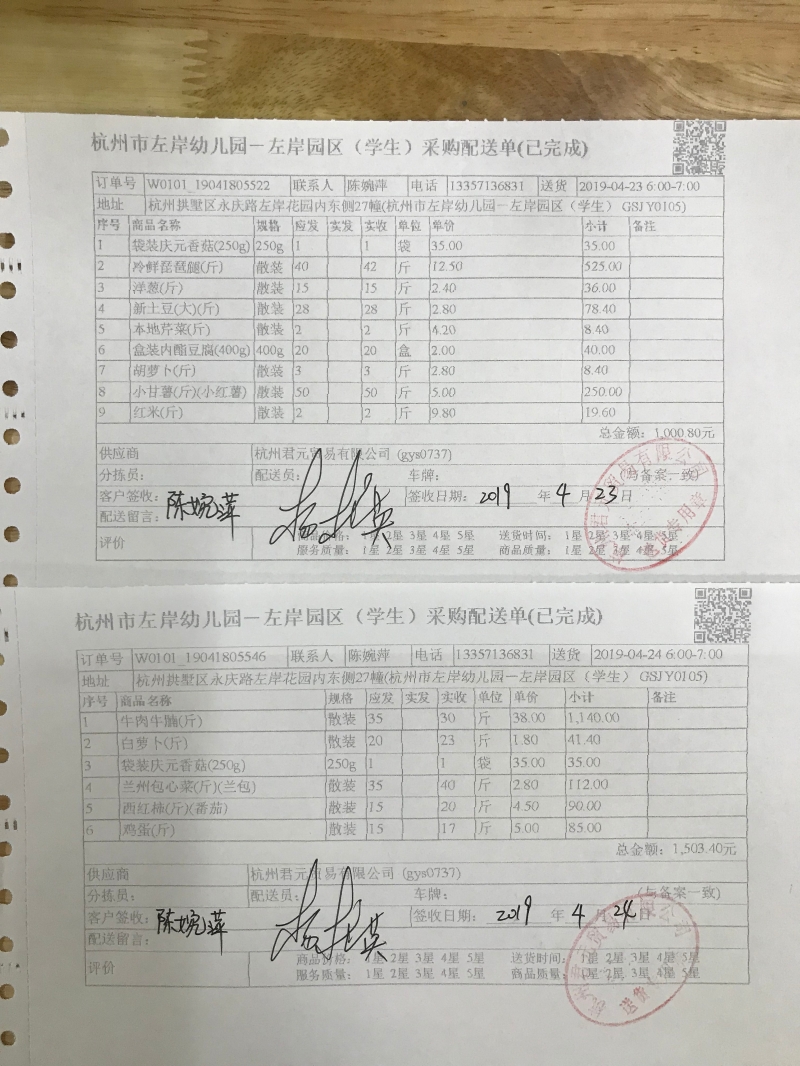 杭州市左岸幼儿园－左岸园区（学生）采购配送单(已完成)
订单号 W0101_19041805522 联系人 陈婉萍 电话 13357136831 送货 2019-04-23 6:00-7:00
地址 杭州拱墅区永庆路左岸花园内东侧27幢(杭州市左岸幼儿园－左岸园区（学生） GSJY0105)
序号 商品名称 规格 应发 实发 实收 单位 单价 小计 备注
1 袋装庆元香菇(250g) 250g 1 1 袋 35.00 35.00
2 冷鲜琵琶腿(斤) 散装 40 42 斤 12.50 525.00
3 洋葱(斤) 散装 15 15 斤 2.40 36.00
4 新土豆(大)(斤) 散装 28 28 斤 2.80 78.40
5 本地芹菜(斤) 散装 2 2 斤 4.20 8.40
6 盒装内酯豆腐(400g) 400g 20 20 盒 2.00 40.00
7 胡萝卜(斤) 散装 3 3 斤 2.80 8.40
8 小甘薯(斤)(小红薯) 散装 50 50 斤 5.00 250.00
9 红米(斤) 散装 2 2 斤 9.80 19.60
总金额：1,000.80元
供应商 杭州君元贸易有限公司 (gys0737)
分拣员： 配送员： 车牌： (与备案一致)
客户签收：陈婉萍 签收日期：2019 年 4 月 23 日
配送留言：
评价 商品价格： 1星 2星 3星 4星 5星 送货时间： 1星 2星 3星 4星 5星
服务质量： 1星 2星 3星 4星 5星 商品质量： 1星 2星 3星 4星 5星
杭州市左岸幼儿园－左岸园区（学生）采购配送单(已完成)
订单号 W0101_19041805546 联系人 陈婉萍 电话 13357136831 送货 2019-04-24 6:00-7:00
地址 杭州拱墅区永庆路左岸花园内东侧27幢(杭州市左岸幼儿园－左岸园区（学生） GSJY0105)
序号 商品名称 规格 应发 实发 实收 单位 单价 小计 备注
1 牛肉牛腩(斤) 散装 35 30 斤 38.00 1,140.00
2 白萝卜(斤) 散装 20 23 斤 1.80 41.40
3 袋装庆元香菇(250g) 250g 1 1 袋 35.00 35.00
4 兰州包心菜(斤)(兰包) 散装 35 40 斤 2.80 112.00
5 西红柿(斤)(番茄) 散装 15 20 斤 4.50 90.00
6 鸡蛋(斤) 散装 15 17 斤 5.00 85.00
总金额：1,503.40元
供应商 杭州君元贸易有限公司 (gys0737)
分拣员： 配送员： 车牌： (与备案一致)
客户签收：陈婉萍 签收日期：2019 年 4 月 24 日
配送留言：
评价 商品价格： 1星 2星 3星 4星 5星 送货时间： 1星 2星 3星 4星 5星
服务质量： 1星 2星 3星 4星 5星 商品质量： 1星 2星 3星 4星 5星